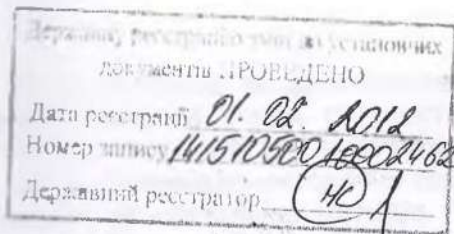 Державну реєстрацію змін до установчих
документів ПРОВЕДЕНО
Дата реєстрації 01. 02. 2012
Номер запису 14151050010002462
Державний реєстратор НС